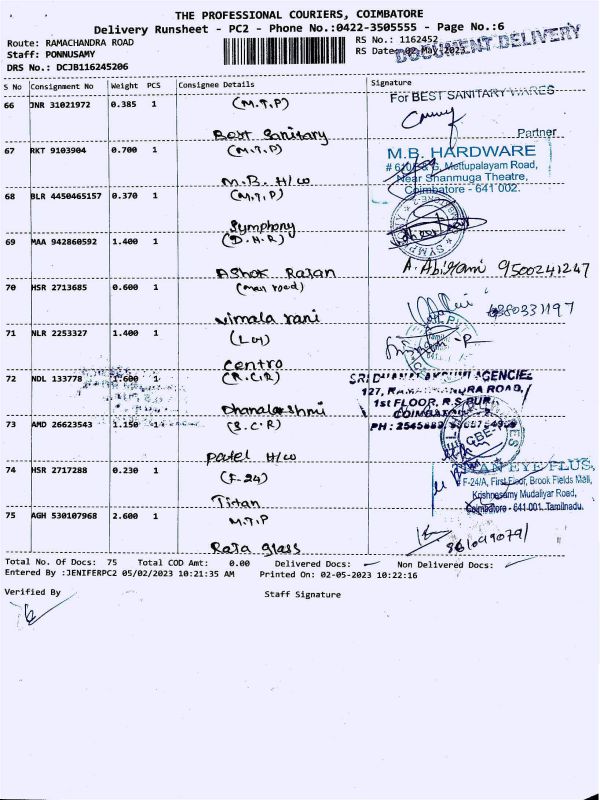 THE PROFESSIONAL COURIERS, COIMBATORE
Delivery Runsheet - PC2 - Phone No.:0422-3505555 - Page No.:6
Route: RAMACHANDRA ROAD
RS No.: 1162452
Staff: PONNUSAMY
RS Date: 02-May-2023
DOCUMENT DELIVERY
DRS No.: DCJB116245206
S No Consignment No Weight PCS Consignee Details Signature
66 JNR 31021972 0.385 1 (M.T.P)
Best Sanitary
For BEST SANITARY WARES
Partner
67 RKT 9103904 0.700 1 (M.T.P)
M.B. H/W
M.B. HARDWARE
Mettupalayam Road,
Near Shanmuga Theatre,
Coimbatore - 641 002.
68 BLR 4450465157 0.370 1 (M.T.P)
Symphony
69 MAA 942860592 1.400 1 (D.H.R)
Ashok Rajan
A. Abirami 9500241247
70 HSR 2713685 0.600 1 (main road)
vimala rani
71 NLR 2253327 1.400 1
Centro
72 NDL 133778 1.600 1 (R.C.R)
Dhanalakshmi
AGENCIES
127, RAMACHANDRA ROAD,
1st FLOOR, R.S.PURAM
COIMBATORE
73 AMD 26623543 1.150 1 (S.C.R)
Patel H/W
74 HSR 2717288 0.230 1 (F-24)
Titan
TITAN EYE PLUS,
F-24/A, First Floor, Brook Fields Mall,
Krishnasamy Mudaliyar Road,
Coimbatore - 641 001. Tamilnadu.
75 AGH 530107968 2.600 1 M.T.P
Raja glass
Total No. Of Docs: 75 Total COD Amt: 0.00 Delivered Docs: Non Delivered Docs:
Entered By :JENIFERPC2 05/02/2023 10:21:35 AM Printed On: 02-05-2023 10:22:16
Verified By
Staff Signature